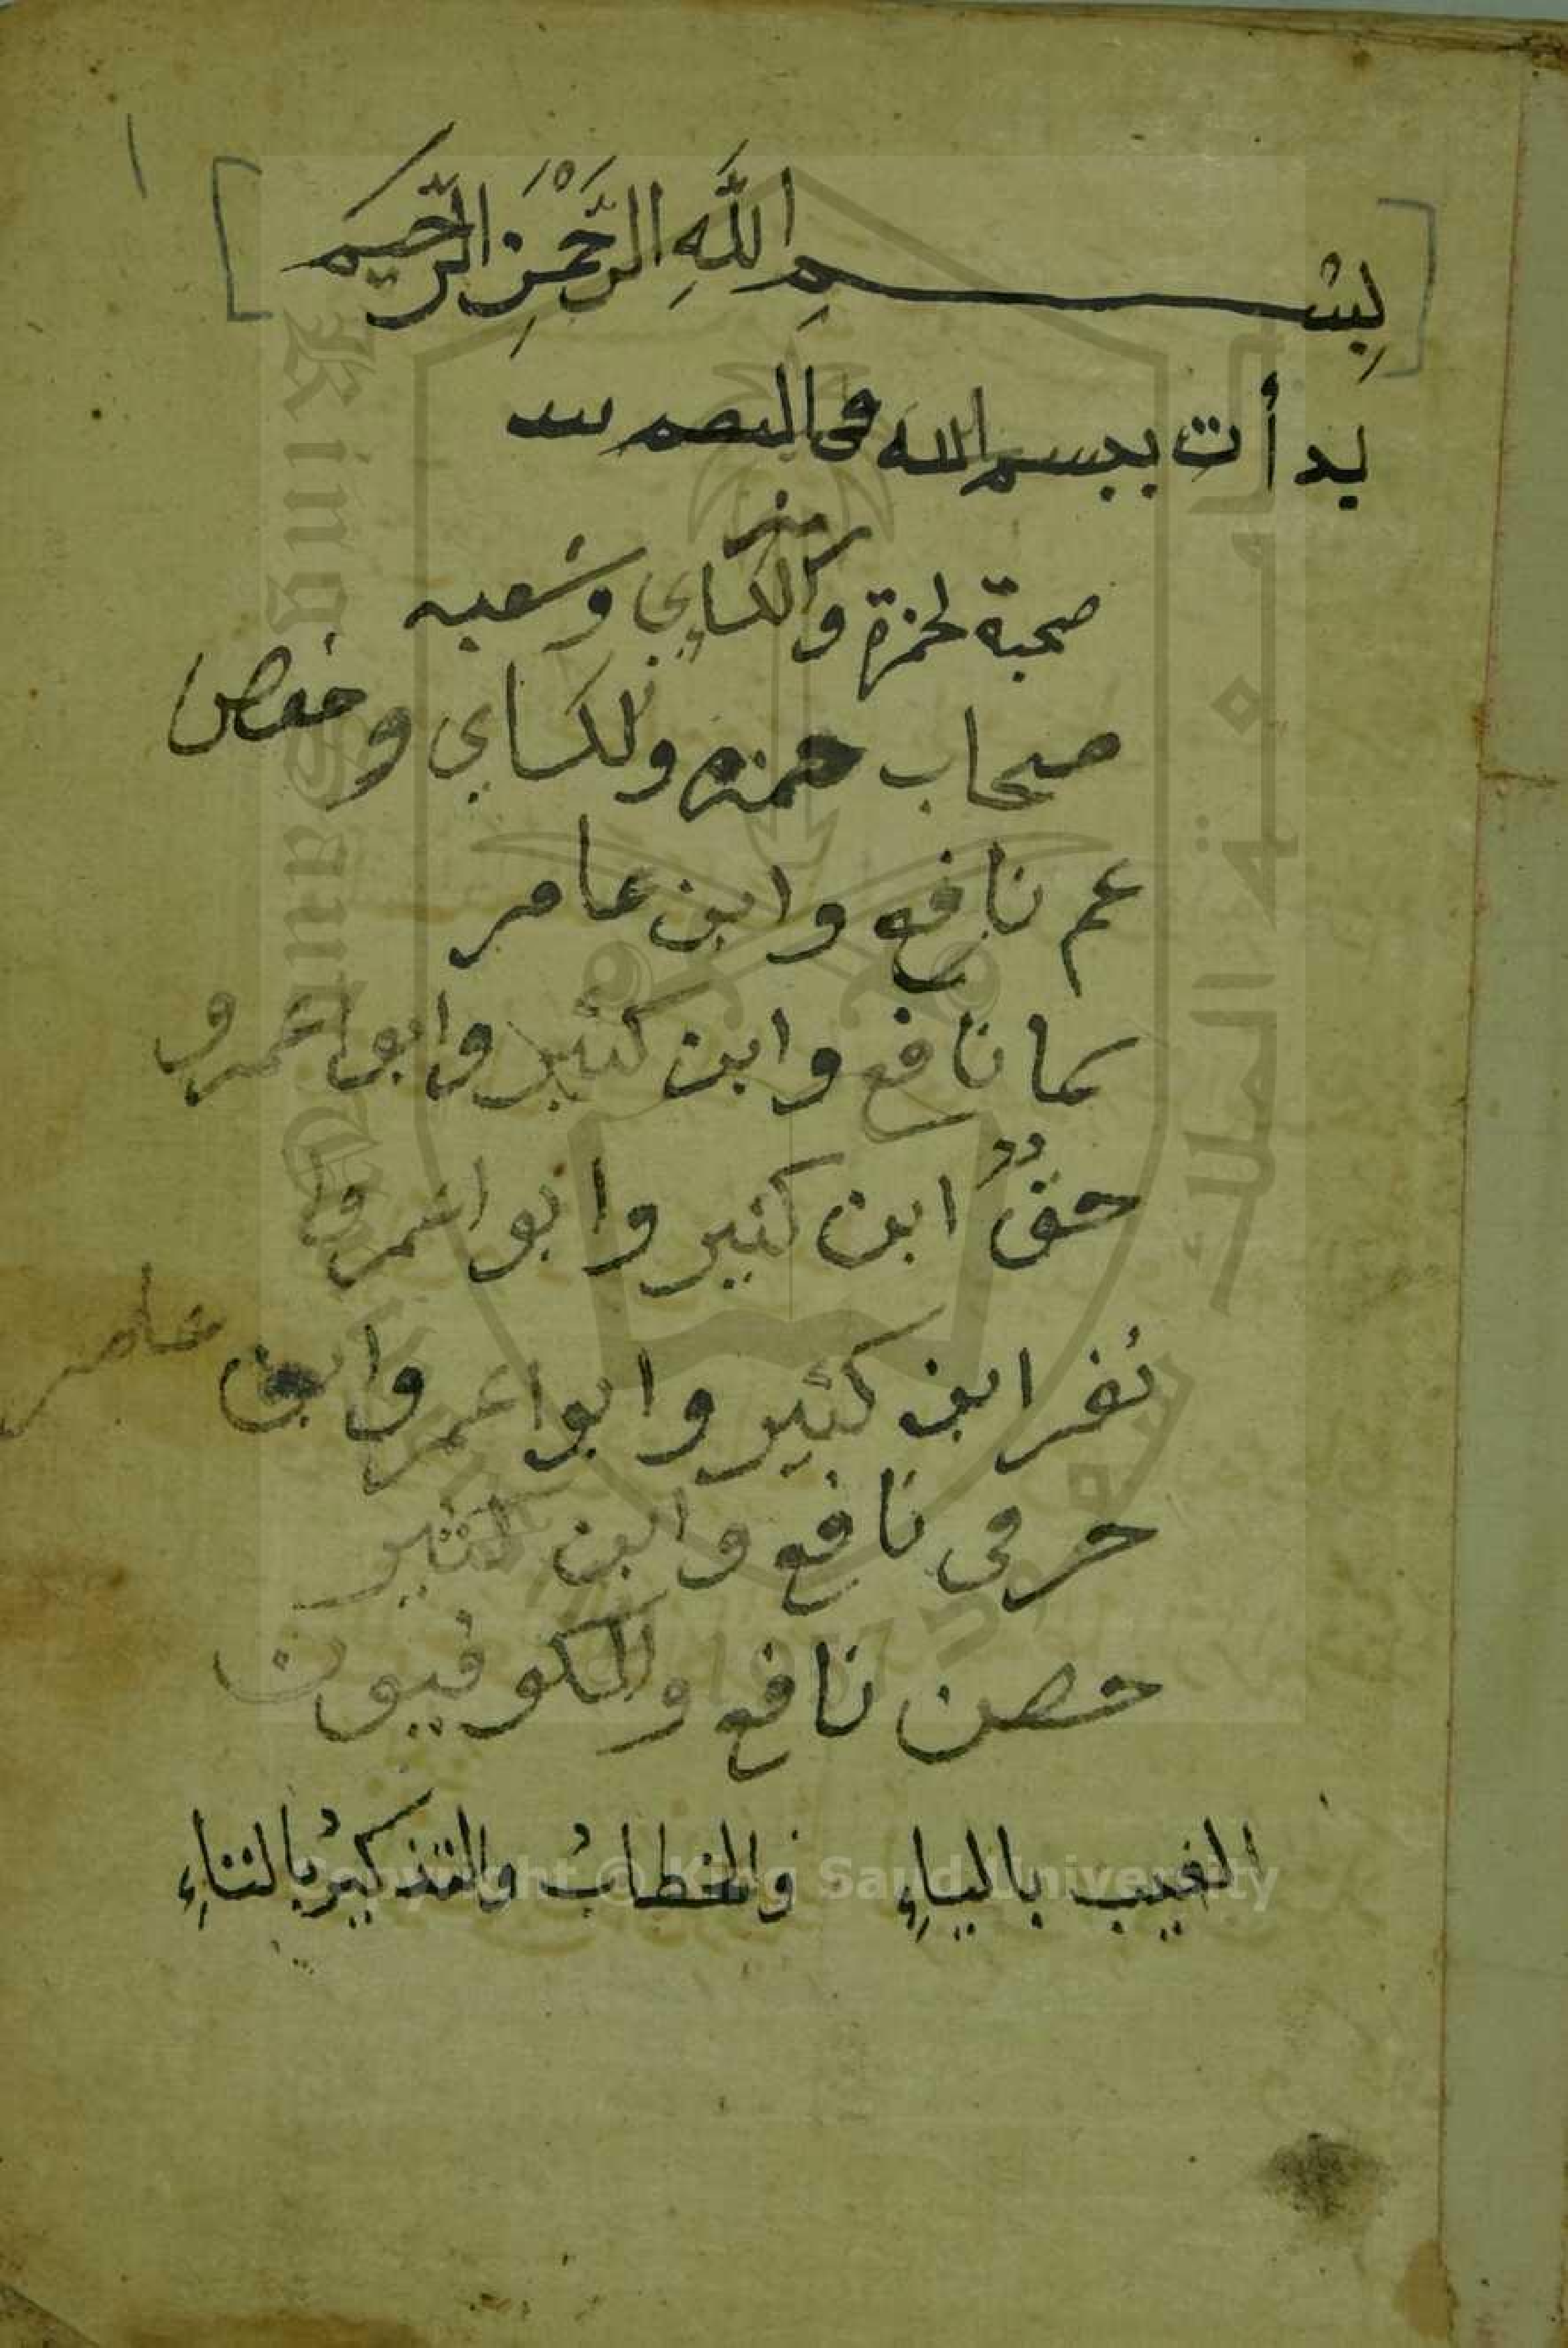 ١
[بِسْمِ اللَّهِ الرَّحْمَنِ الرَّحِيمِ]
بدأت ببسم الله في النظم
رمز
صحبة لحمزة والكساي وشعبه
صحاب حمزه ولكساي وحفص
عم نافع وابن عامر
سما نافع وابن كثير وابوا عمرو
حقٌ ابن كثير وابوا عمروا
نفر ابن كثير وابوا عمر وابن عامر
حرمى نافع وابن كثير
حصن نافع والكوفيون
الغيب بالياءِ والخطابُ والتذكيرُ بالتاءِ
King Saud University
جامعة الملك سعود
1957
Copyright © King Saud University